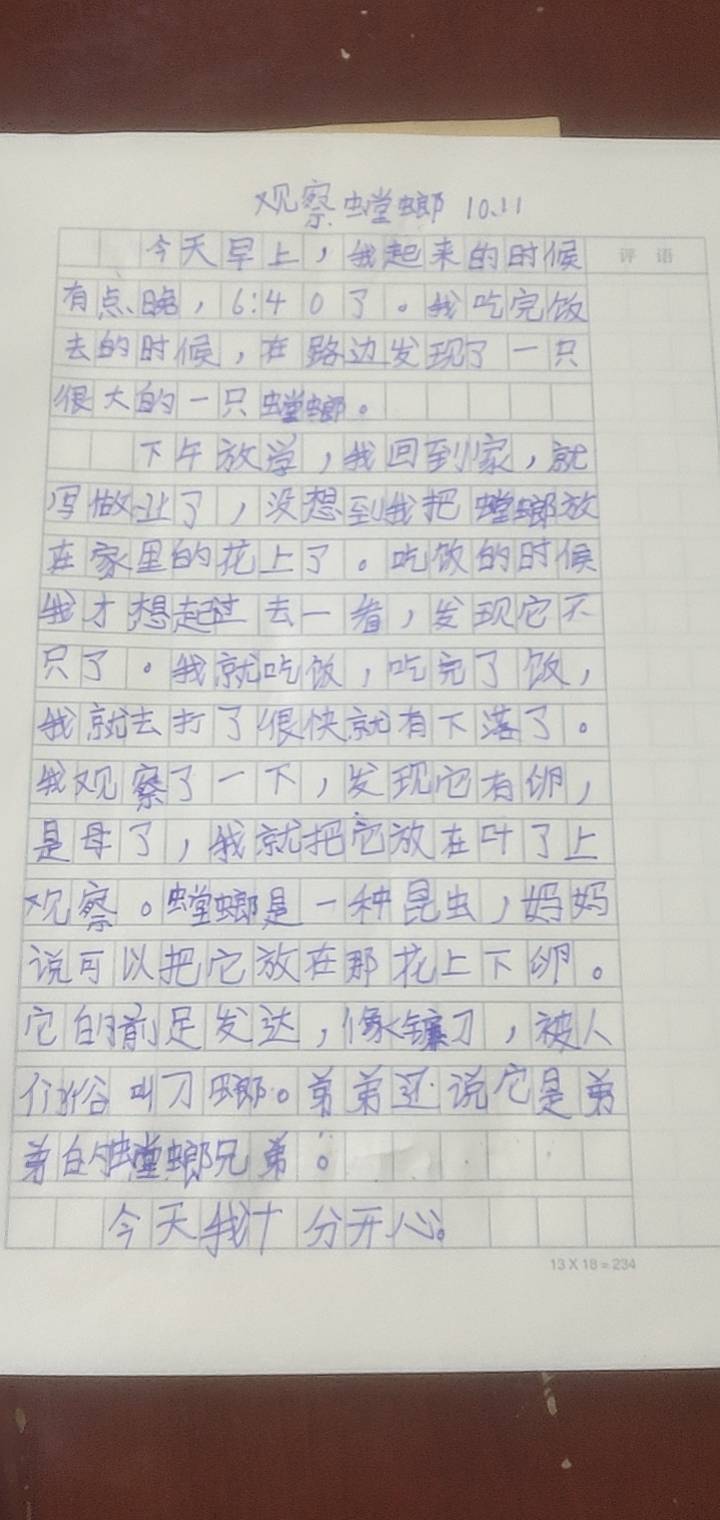 观察螳螂 10.11
今天早上，我起来的时候
评 语
有点晚，6:40了。我吃完饭
去的时候，在路边发现了一只
很大的一只螳螂。
下午放学，我回到家，就
写做让了，没想到我把螳螂放
在家里的花上了。吃饭的时候
我才想起过去一看，发现它不
只了。我就吃饭，吃完了饭，
我就去打了很快就有下落了。
我观察了一下，发现它有卵，
是母了，我就把它放在叶了上
观察。螳螂是一种昆虫，妈妈
说可以把它放在那花上下卵。
它的前足发达，像镰刀，被人
们俗叫刀螂。弟弟还说它是弟
弟的螳螂兄弟。
今天我十分开心。
13 X 18 = 234